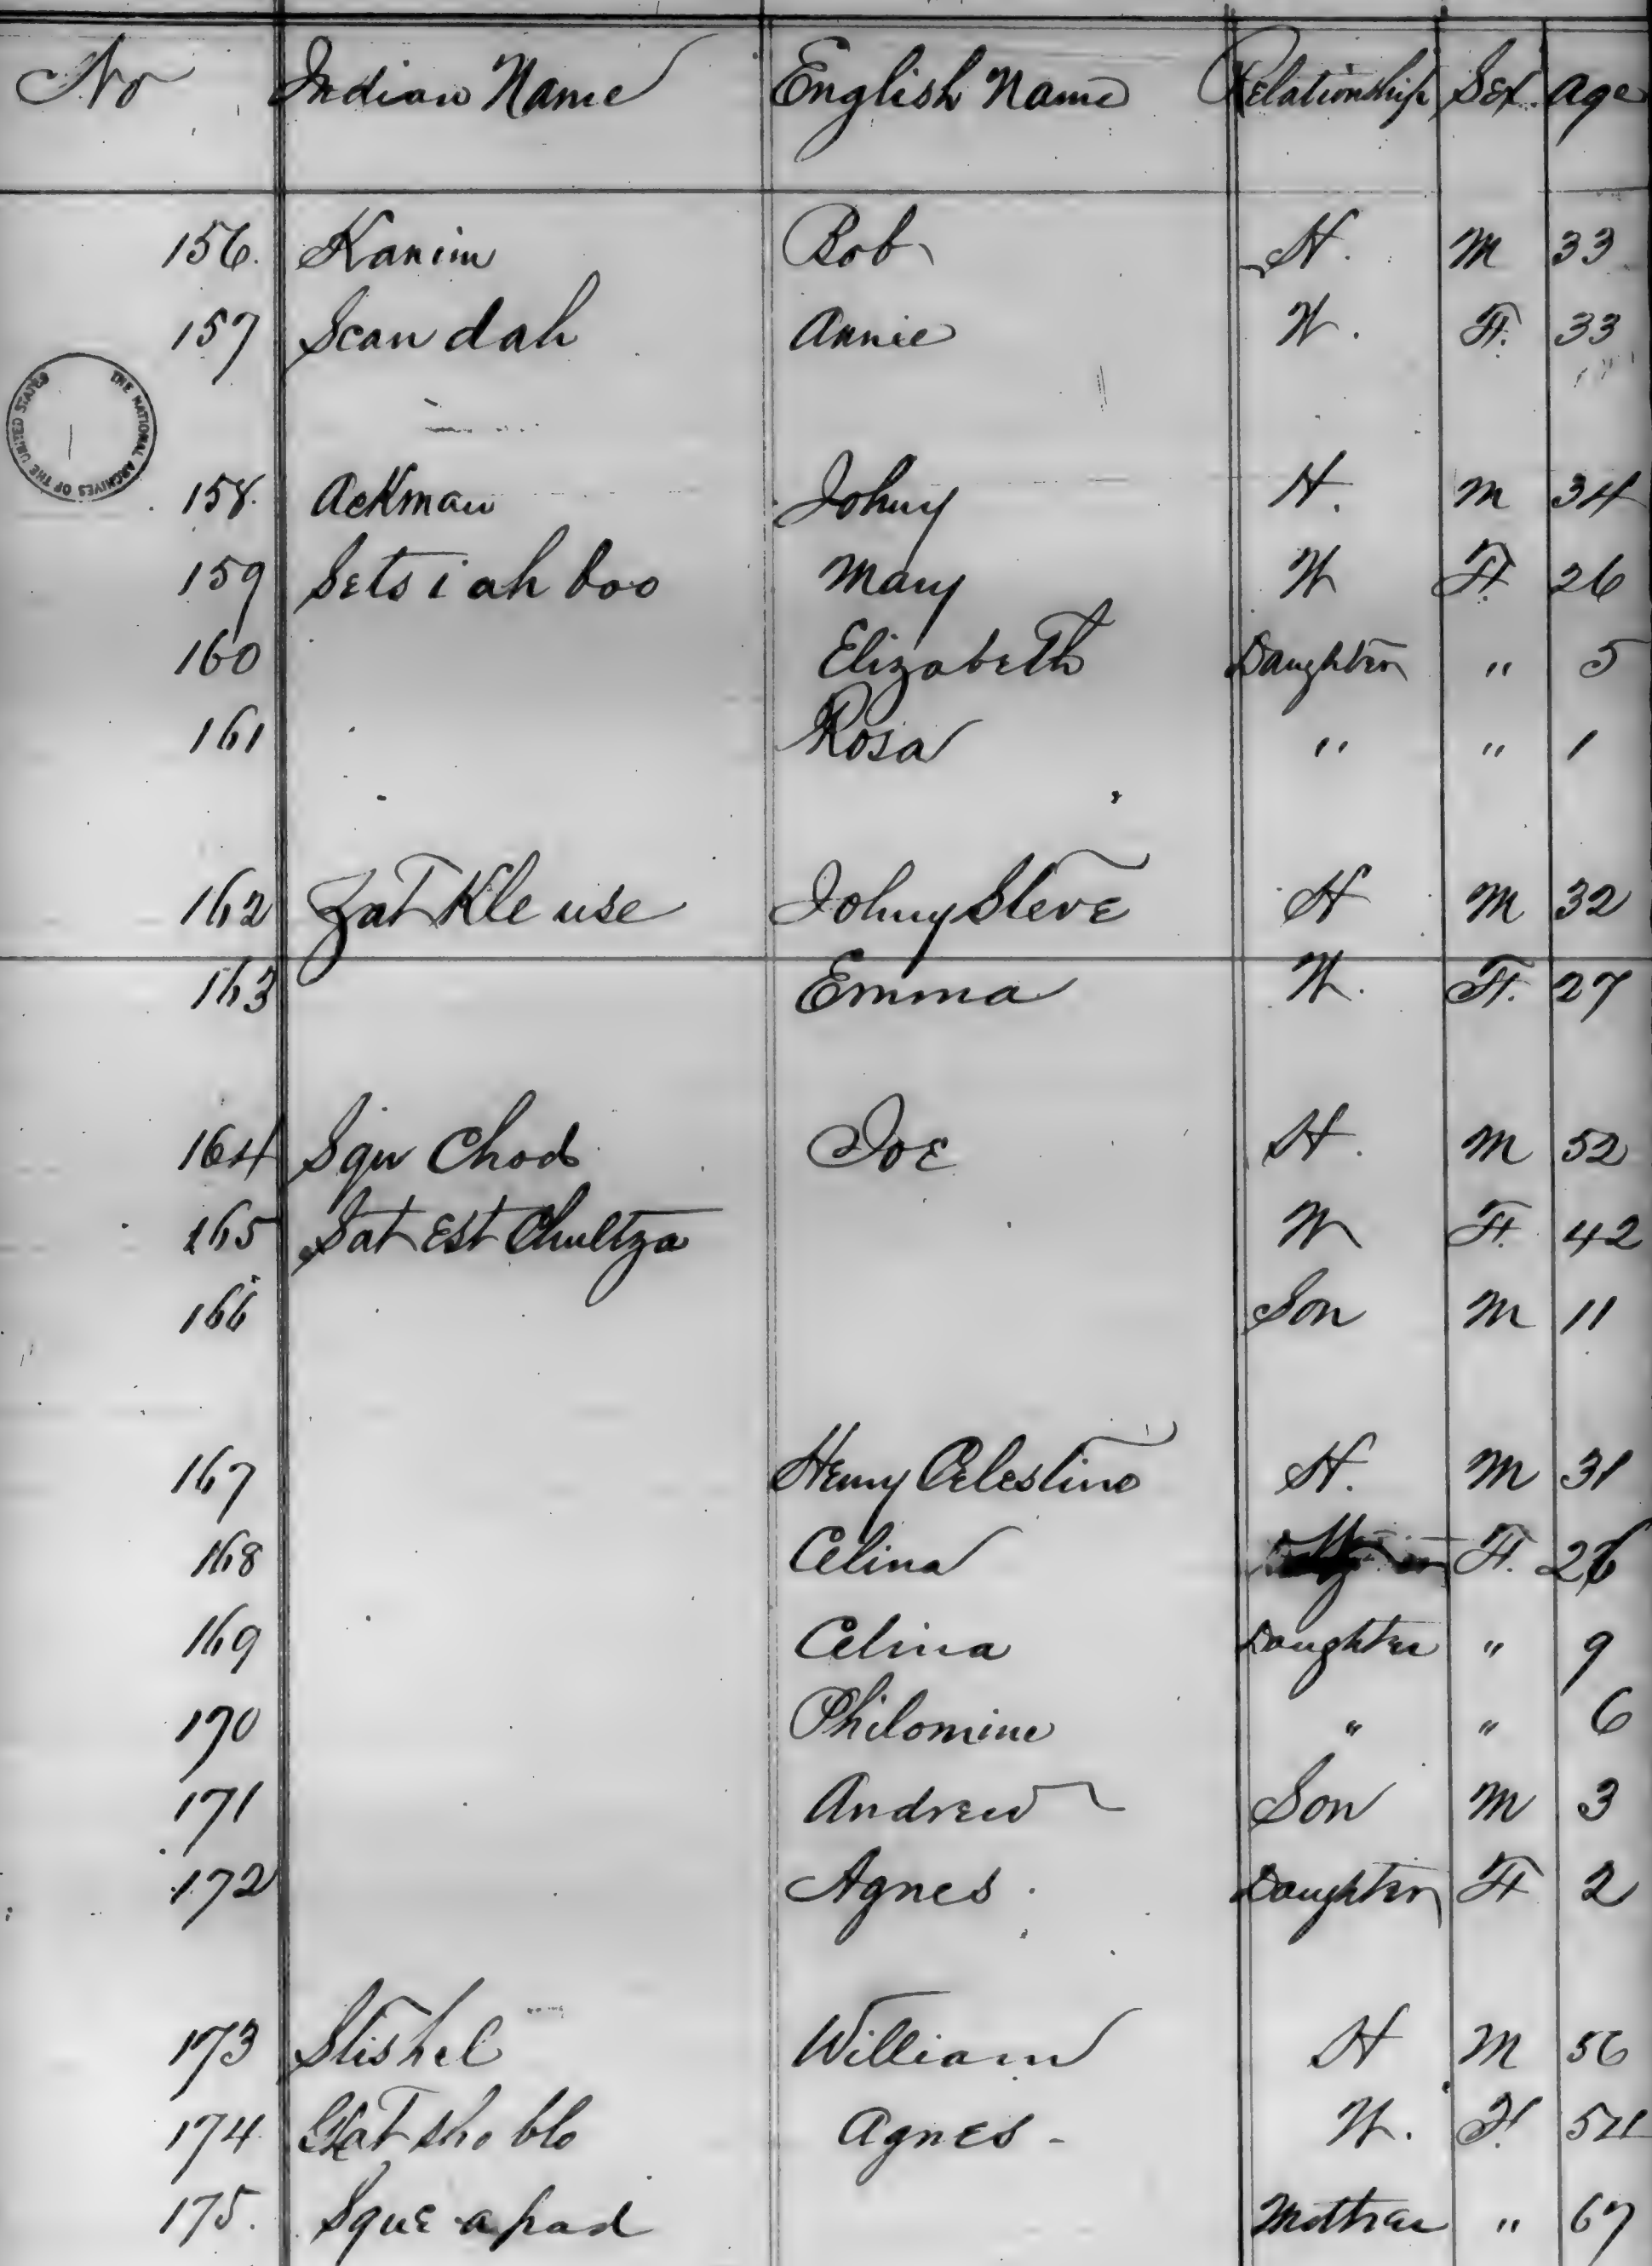 No Indian Name English Name Relationship Sex. Age
156. Kanim Bob H. M 33
157 Scan dah Annie W. F. 33
THE NATIONAL ARCHIVES OF THE UNITED STATES
158. Ackman Johny H. M 34
159 Sets i ah boo Mary W F. 26
160 Elizabeth Daughter " 5
161 Rosa " " 1
162 Zat Kle use Johny Steve H M 32
163 Emma W. F. 27
164 Squ Chod Joe H. M 52
165 Sat Est Chultza W F. 42
166 Son M 11
167 Henry Celestine H. M 31
168 Celina F. 26
169 Celina Daughter " 9
170 Philomine " " 6
171 Andrew Son M 3
172 Agnes Daughter F 2
173 Stishel William H M 56
174 sho blo Agnes - W. F. 54
175. Sque a pad Mother " 67